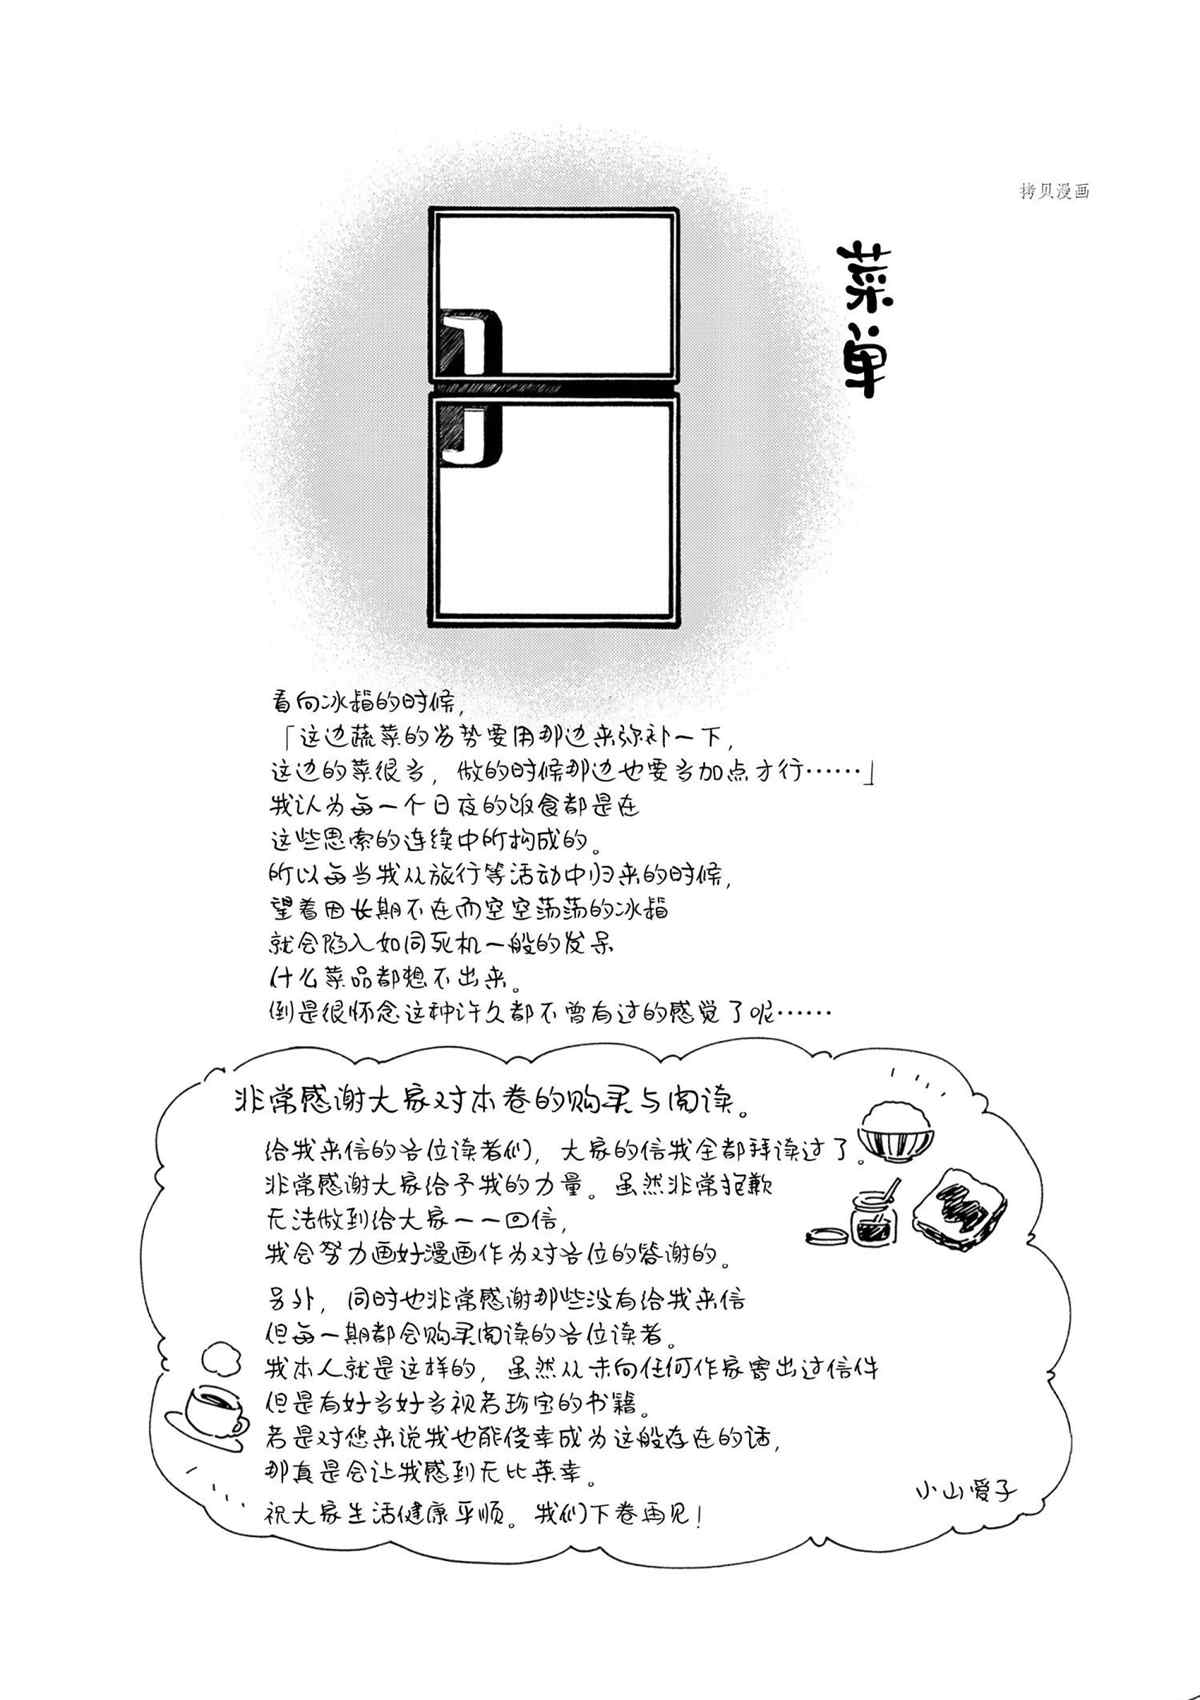 拷贝漫画
菜单
看向冰箱的时候,
「这边蔬菜的劣势要用那边来弥补一下,
这边的菜很多，做的时候那边也要多加点才行……」
我认为每一个日夜的饭食都是在
这些思索的连续中所构成的。
所以每当我从旅行等活动中归来的时候,
望着因长期不在而空空荡荡的冰箱
就会陷入如同死机一般的发呆
什么菜品都想不出来。
倒是很怀念这种许久都不曾有过的感觉了呢……
非常感谢大家对本卷的购买与阅读。
给我来信的各位读者们，大家的信我全都拜读过了。
非常感谢大家给予我的力量。虽然非常抱歉
无法做到给大家一一回信,
我会努力画好漫画作为对各位的答谢的。
另外，同时也非常感谢那些没有给我来信
但每一期都会购买阅读的各位读者。
我本人就是这样的，虽然从未向任何作家寄出过信件
但是有好多好多视若珍宝的书籍。
若是对您来说我也能侥幸成为这般存在的话,
那真是会让我感到无比荣幸。
祝大家生活健康平顺。我们下卷再见!
小山爱子